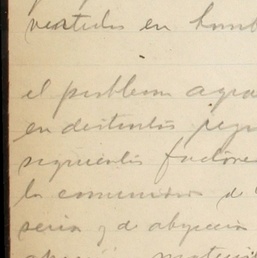 vertidos en homb
el problema agra
en distintas regi
siguientes factore
la comunidad de
seria y de abyección